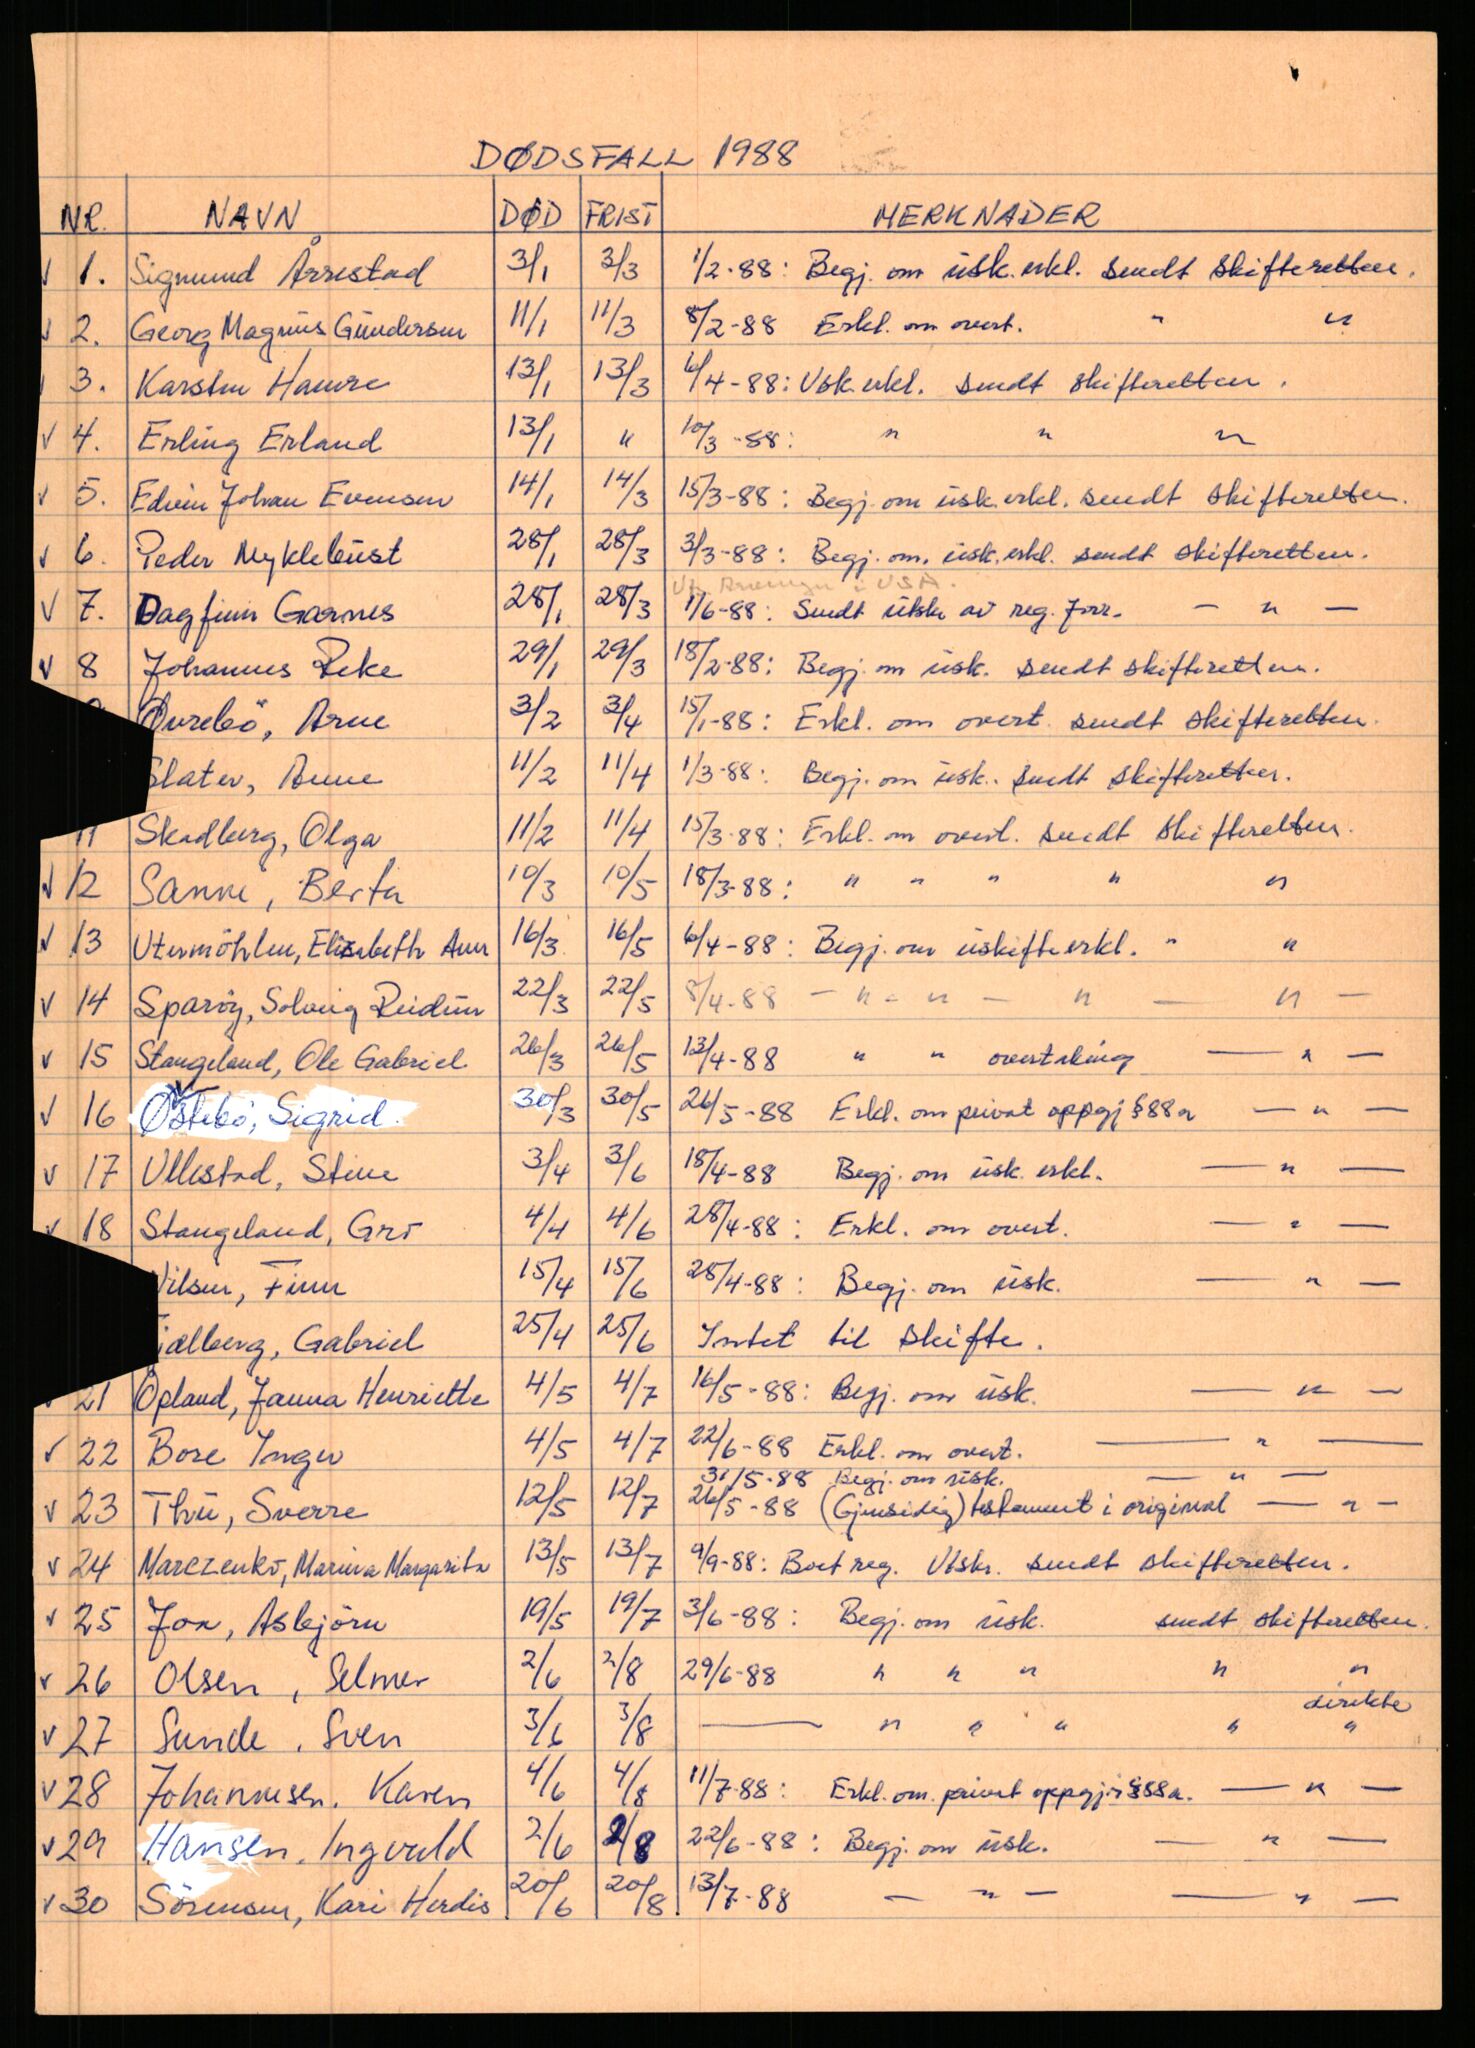 DØDSFALL 1988
NR. NAVN DØD FRIST MERKNADER
√ 1. Sigmund Årrestad 3/1 3/3 1/2-88: Begj. om usk. erkl. sendt skifteretten.
√ 2. Georg Magnus Gundersen 11/1 11/3 8/2-88 Erkl. om overt. " "
√ 3. Karsten Hamre 13/1 13/3 6/4-88: Usk. erkl. sendt skifteretten.
√ 4. Erling Erland 13/1 " 10/3-88: " " "
√ 5. Edvin Johan Evensen 14/1 14/3 15/3-88: Begj. om usk. erkl. sendt skifteretten.
√ 6. Peder Myklebust 28/1 28/3 3/3-88: Begj. om. usk. erkl. sendt skifteretten.
i USA.
√ 7. Dagfinn Garnes 28/1 28/3 1/6-88: Sendt utskr av reg. forr. — " —
√ 8 Johannes Reke 29/1 29/3 18/2-88: Begj. om usk. sendt skifteretten.
Øvrebö, Arne 3/2 3/4 15/1-88: Erkl. om overt. sendt skifteretten.
Slater, Anne 11/2 11/4 1/3-88: Begj. om usk. sendt skifteretten.
11 Skadberg, Olga 11/2 11/4 15/3-88: Erkl. om overt. sendt skifteretten.
√ 12 Sanne, Berta 10/3 10/5 18/3-88: " " " " "
√ 13 Utermöhlen, Elisabeth Ann 16/3 16/5 6/4-88: Begj. om uskifte erkl. " "
√ 14 Sparöy, Solveig Reidun 22/3 22/5 8/4-88 — " - " — " — " —
√ 15 Stangeland, Ole Gabriel 26/3 26/5 13/4-88 " " overtaking — " —
√ 16 Østebö, Sigrid. 30/3 30/5 26/5-88 Erkl. om privat oppgj § 88 a — " —
√ 17 Ullestad, Stine 3/4 3/6 18/4-88 Begj. om usk. erkl. — " —
√ 18 Stangeland, Gro 4/4 4/6 28/4-88: Erkl. om overt. — " —
Nilsen, Finn 15/4 15/6 28/4-88: Begj. om usk. — " —
jælberg, Gabriel 25/4 25/6 Intet til skifte.
21 Opland, Janna Henriette 4/5 4/7 16/5-88: Begj. om usk. — " —
√ 22 Bore Inger 4/5 4/7 22/6-88 Erkl. om overt. — " —
31/5-88 Begj. om usk. — " —
√ 23 Thu, Sverre 12/5 12/7 26/5-88 (Gjensidig) testament i original — " —
√ 24 Marczenko, Marina Margarita 13/5 13/7 9/9-88: Boet reg. Utskr. sendt skifteretten.
√ 25 Fox, Asbjörn 19/5 19/7 3/6-88: Begj. om usk. sendt skifteretten.
√ 26 Olsen, Selmer 2/6 2/8 29/6-88 " " " " "
direkte
√ 27 Sunde, Sven 3/6 3/8 — " " " " "
√ 28 Johannesen, Karen 4/6 4/8 11/7-88: Erkl. om. privat oppgj. § 88 a. — " —
√ 29 Hansen, Ingvald 2/6 2/8 22/6-88: Begj. om usk. — " —
√ 30 Sörensen, Kari Herdis 20/6 20/8 13/7-88 — " — — " —